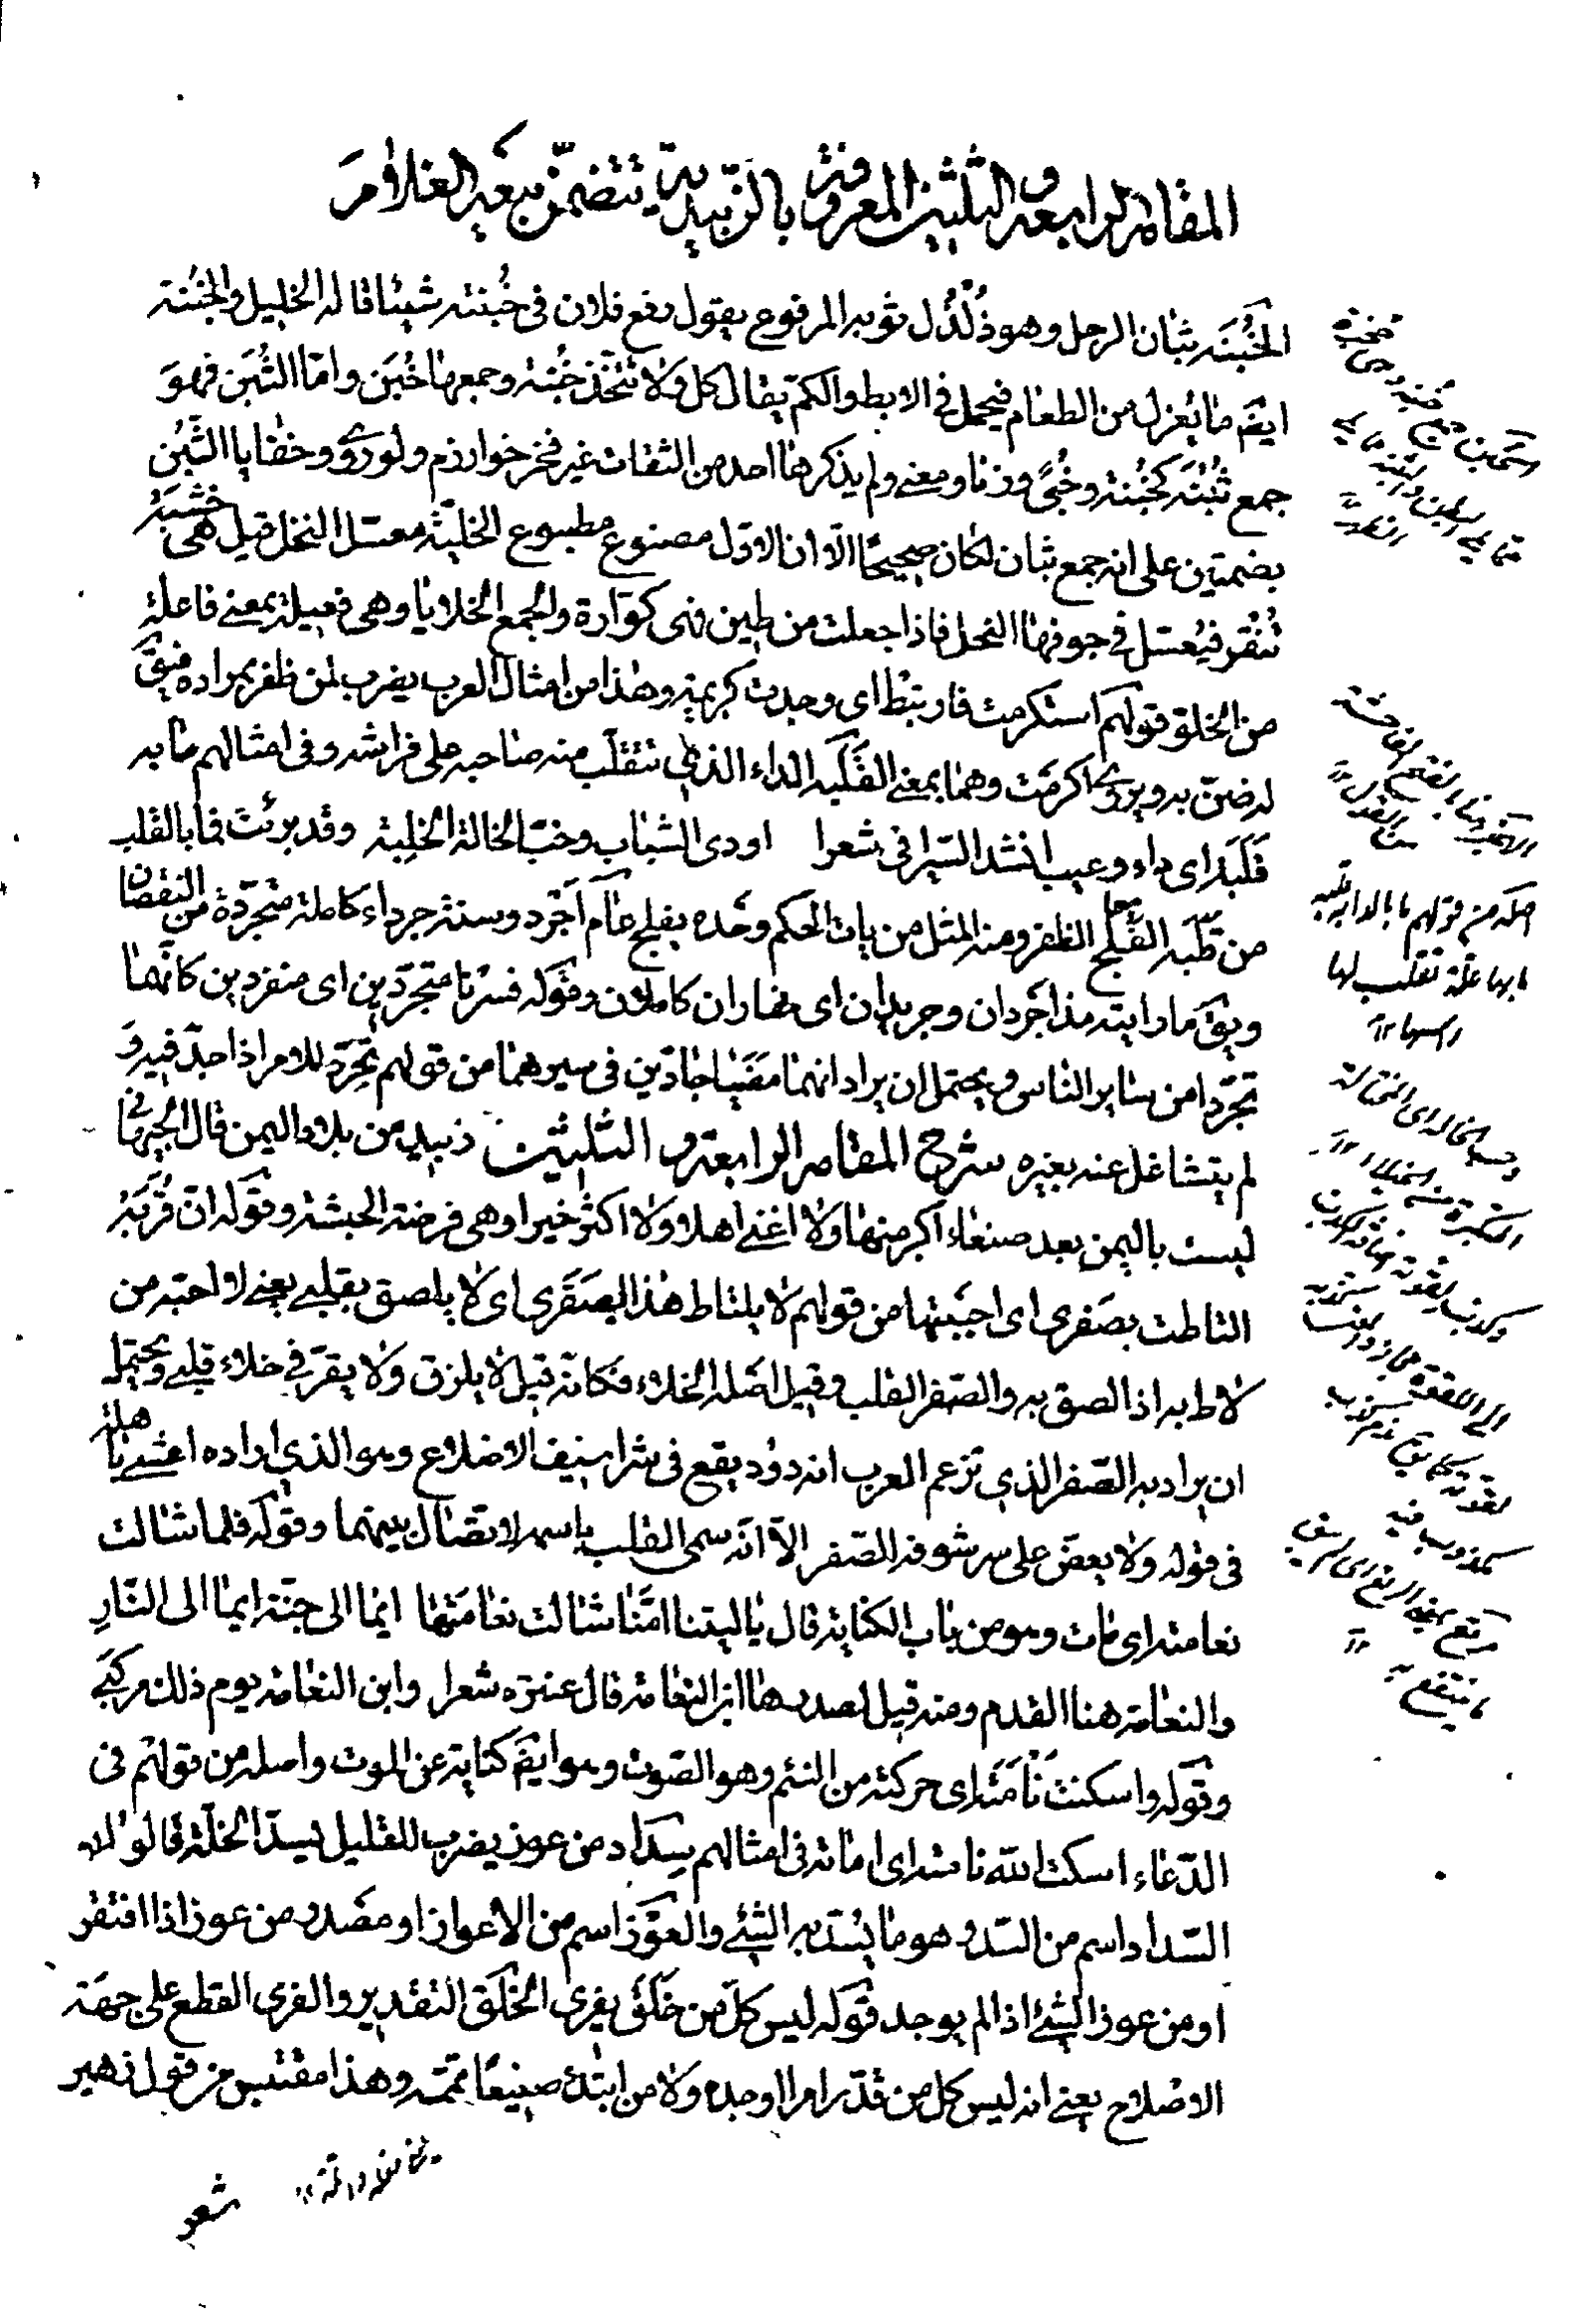 المقامة الرابعة و الثلثين المعروفة بالزّبيدية تتضمّن بيعه الغلامَ
الخُبنَه ثبان الرجل وهو ذُلذُل ثوبه المرفوع يقول رفع فلان فى خُبنته شيئا قاله الخليل والخُبنة
ايضً ما يعزل من الطعام فيحمل فى الابط والكم يقال كل ولا تتّخذ خُبنة وجمعها خُبَن وامّا الثُبَن فهوَ
جمع ثُبْنَه كخُبْنة وخُبًى وزنا ومعنى ولم يذكرها احد من الثقات غير فخر خوارزم ولو روى وخفايا الثُبُن
بضمتين على انه جمع ثبان لكان صحيحًا الّا ان الاوّل مصنوع مطبوع الخليّة معسّل النحل قيل هى خشبَة
تُنْقر فيُعسّل فى جوفها النحل فاذا جعلت من طين فهى كوّارة والجمع الخلايا وهى فعيلة بمعنى فاعلة
من الخلق قولهم استكرمت فاربتط اى وجدت كريمة وهذا من امثال العرب يضرب لمن ظفر بمراده فيقَ
له ضنّ به ويروى اكرمت وهما بمعنى القَلَبه الداء الذى تتقلّب منه صاحبه على فراشه وفى امثالهم ما به
قَلَبَة اى داء وعيب انشد السّيرافى شعرا اودى الشباب وحبّ الخالة الخلِبة وقد برئتَ فما بالقلب
من قَلَبه الفَلْج الظفر ومنه المثل من يات الحكم وحده يفلج عام اَجْرد وسنة جرداء كاملة متجرّدة من النقصان
ويقَ ما رايته مذ اجردان وجريدان اى نهاران كاملان وقوله فسرنا متجرّدين اى منفردين كانّهما
تجرّدا من سائر الناس ويحتمل ان يراد انهما مضَيا جادّين فى سيرهما من قولهم تجرّد للامر اذا جدّ فيه وَ
لم يتشاغل عنه بغيره شرح المقامه الرابعة و الثلثين زبيد من بلاد اليمن قال الجيهانى
ليست باليمن بعد صنعاء اكبر منها ولا اغنى اهلا ولا اكثر خيرا وهى فرضة الحبشة وقوله انّ قُربَهُ
التاطت بصَفرى اى احببتها من قولهم لا يلتاط هذا بصَفَرى اى لا يلصق بقلبى يعنى لا احبّه من
لاط به اذا الصق به والصفر القلب وقيل اصَله الخلاء فكانّه قيل لا يلزق ولا يقرّ فى خلاء قلبى ويحتمل
ان يراد به الصّفر الذى تزعم العرب انه دود يقع فى شراسيف الاضلاع وهو الذى اراده اعشى باهلة
فى قوله ولا يعضّ على شرسوفه الصّفر الّا انّه سمى القلب باسمه لاتصال بينهما وقوله فلما شالت
نعامته اى مات وهو من باب الكناية قال ياليتنا امّنا شالت نعامتها ايما الى جنّة ايما الى النّارِ
والنعامة هنا القدم ومنه قيل لصدرها ابن النعامة قال عنترة شعرا وابن النعامة يوم ذلك مركبى
وقوله واسكنت نَامَتَه اى حركته من النئم وهو الصّوت وهو ايضَ كناية عن الموت واصله من قولهم فى
الدّعاء اسكت الله نامته اى اماته فى امثالهم سِدَاد من عوز يضرب للقليل ليسدّ الخلّة قالوا لانّ
السّداد اسم من السّد وهو ما يُسَدّ به الشئ والعَوَز اسم من الاعواز او مصدر من عوز اذا افتقر
او من عوز الشئ اذا لم يوجد قوله ليس كلّ من خلَقَ يفرى الخلَق التقدير والفرى القطع على جهة
الاصلاح يعنى انه ليس كل من قدّر امرا اوجده ولا من ابتدئ صنيعًا تممّه وهذا مقتبس من قول زهير
شعر
اصله من قولهم ما بالدابة قلبه
ما بها علة تقلب لها